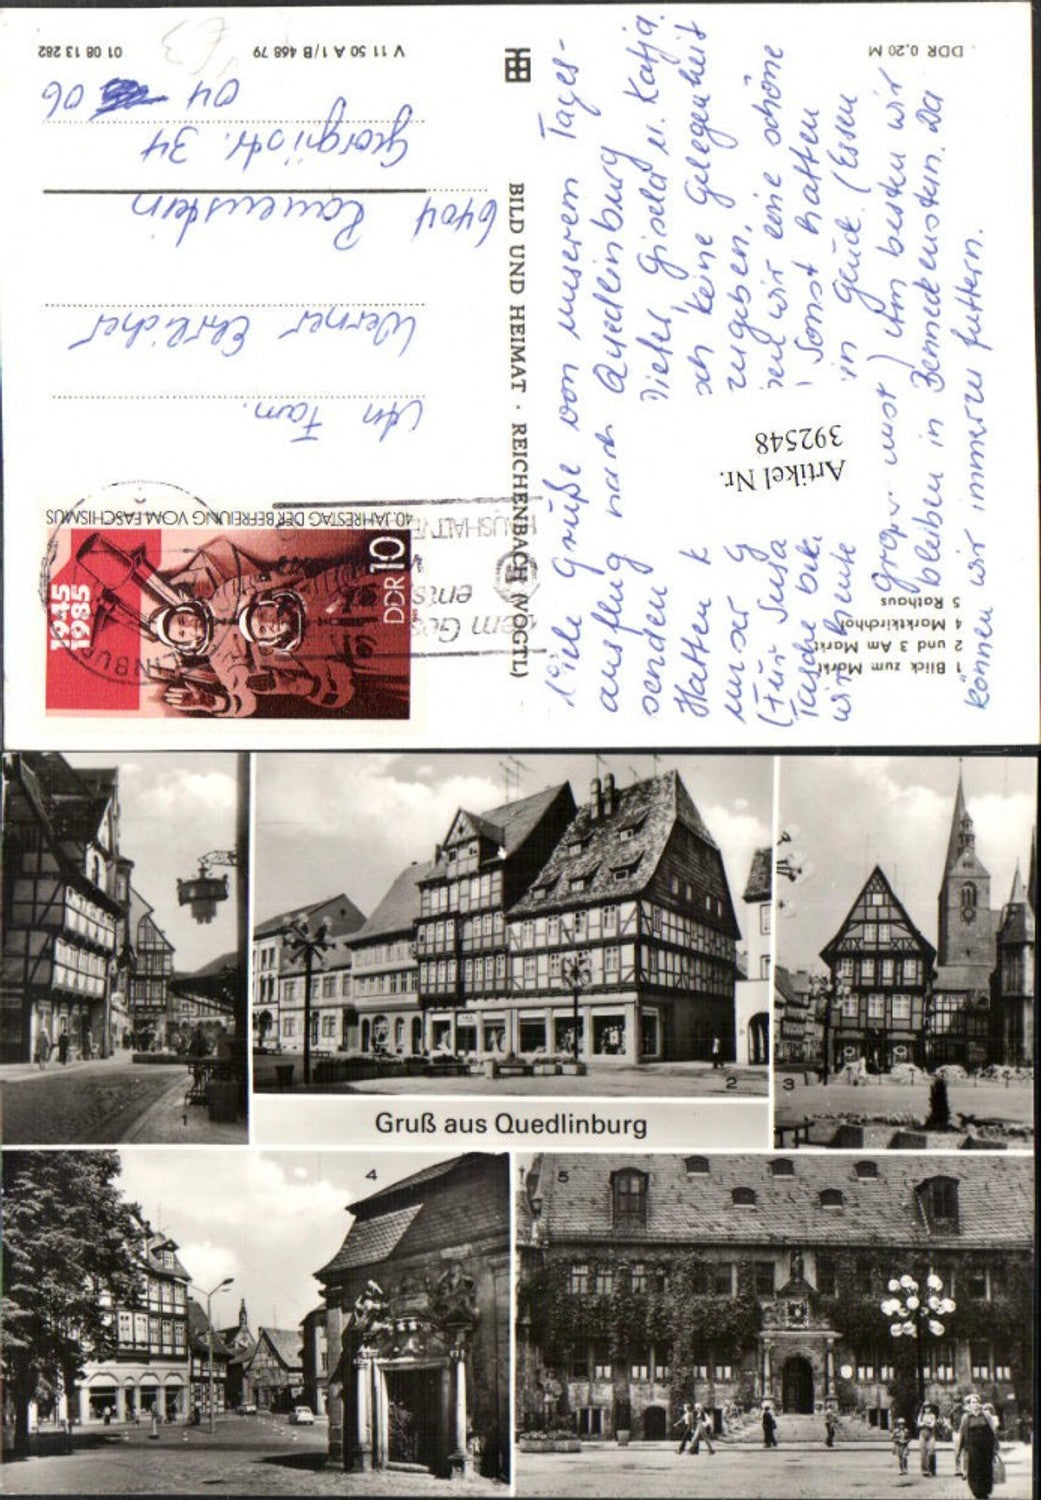 DDR 0,20 M
V 11 50 A 1/B 468 79
01 08 13 282
BILD UND HEIMAT · REICHENBACH (VOGTL)
1 Blick zum Markt
2 und 3 Am Markt
4 Marktkirchhof
5 Rathaus
Viele Grüße von unserem Tages-
ausflug nach Quedlinburg
senden Dieter, Gisela u. Katja.
Hatten k sch keine Gelegenheit
unser G zugeben,
(Für Susa weil wir eine schöne
Tasche bek. Sonst hatten
wir heute in Glück. (Essen
prop. nust) Am besten wir
bleiben in Benneckenstein. Da
können wir immerzu futtern.
Artikel Nr.
392548
DDR 10
1945
1985
40. JAHRESTAG DER BEFREIUNG VOM FASCHISMUS
An Fam.
Werner Ehrlicher
6404 Rauenstein
Georgiistr. 34
04 06
Gruß aus Quedlinburg
1
2
3
4
5